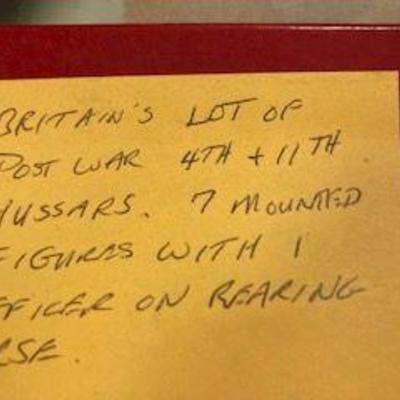 BRITAIN'S LOT OF
POST WAR 4TH + 11TH
HUSSARS. 7 MOUNTED
FIGURES WITH 1
OFFICER ON REARING
HORSE.